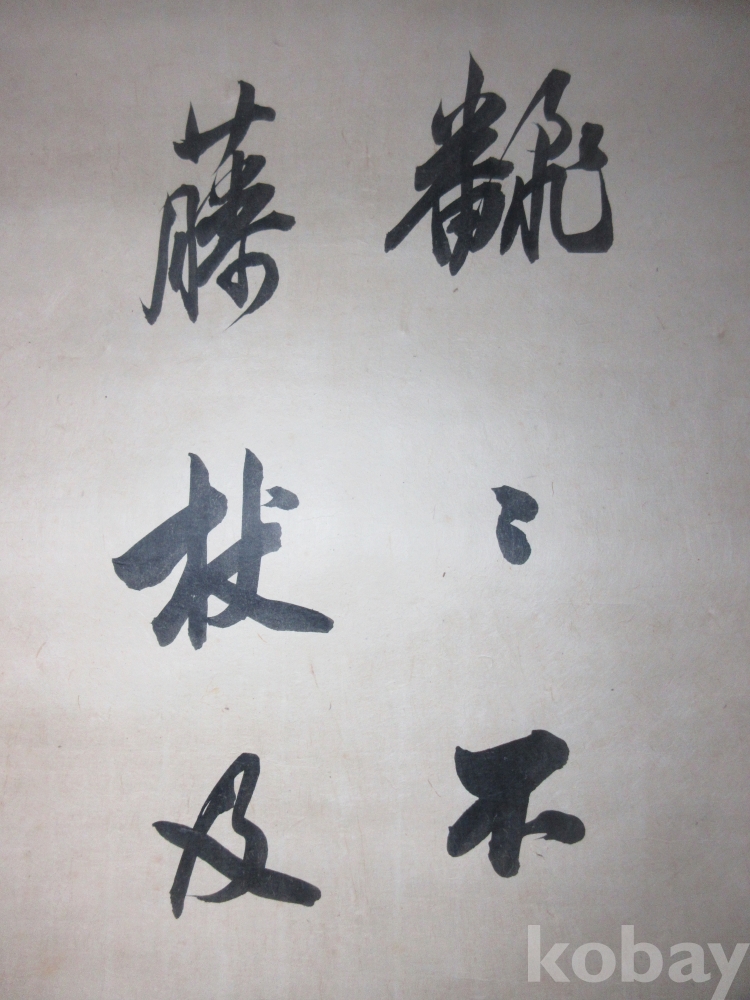 飜〻不
藤杖及
kobay